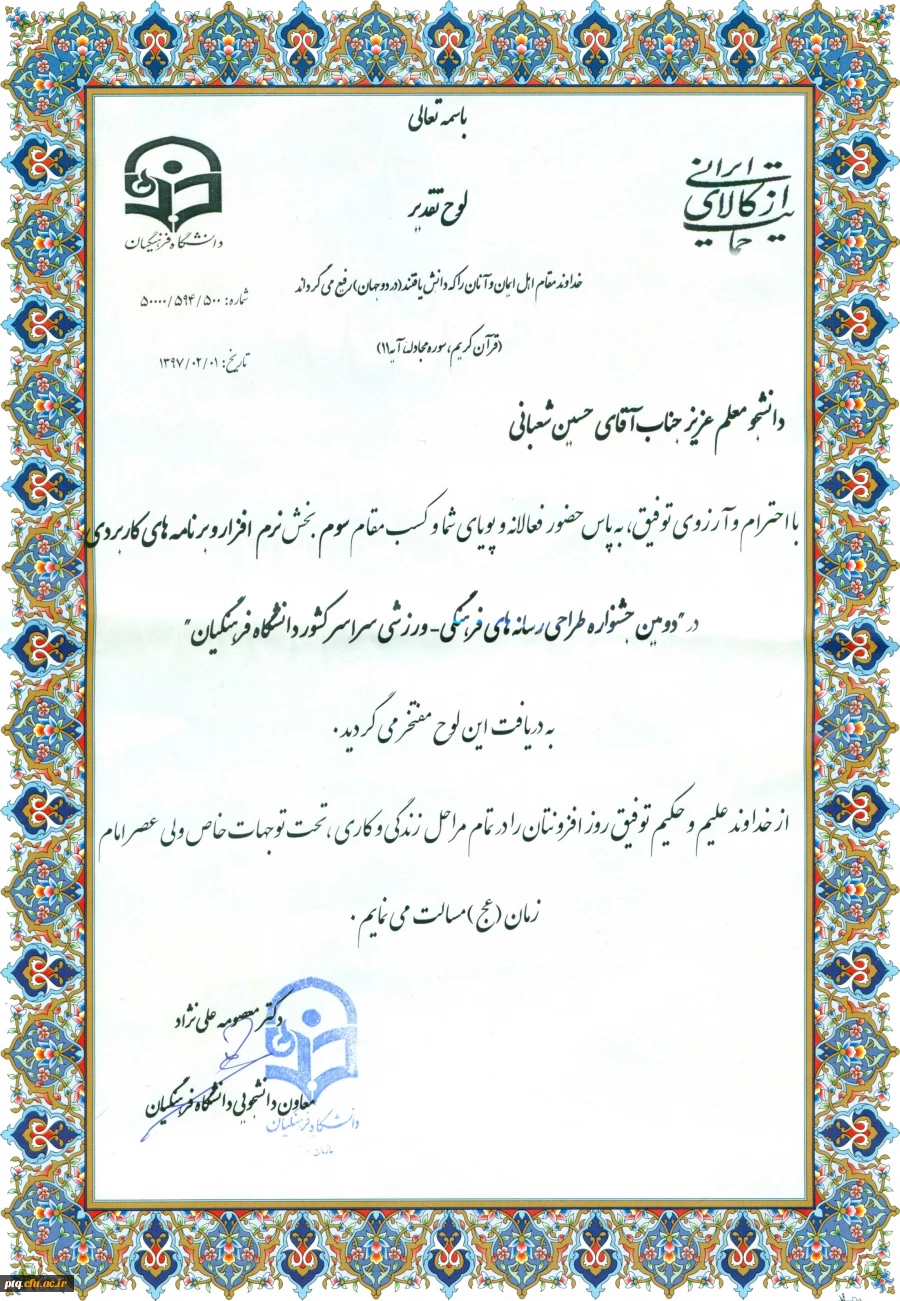 باسمه تعالی
حمایت از کالای ایرانی
دانشگاه فرهنگیان
لوح تقدیر
خداوند مقام اهل ایمان و آنان را که دانش یافتند (در دو جهان) رفیع می گرداند
شماره: ۵۰۰۰۰/۵۹۴/۵۰۰
(قرآن کریم، سوره مجادله، آیه ۱۱)
تاریخ: ۱۳۹۷/۰۲/۰۱
دانشجو معلم عزیز جناب آقای حسین شعبانی
با احترام و آرزوی توفیق، به پاس حضور فعالانه و پویای شما و کسب مقام سوم بخش نرم افزار و برنامه های کاربردی
در "دومین جشنواره طراحی رسانه های فرهنگی - ورزشی سراسر کشور دانشگاه فرهنگیان"
به دریافت این لوح مفتخر می گردید .
از خداوند علیم و حکیم توفیق روز افزونتان را در تمام مراحل زندگی و کاری ، تحت توجهات خاص ولی عصر امام
زمان (عج) مسالت می نمایم .
دکتر معصومه علی نژاد
معاون دانشجویی دانشگاه فرهنگیان
دانشگاه فرهنگیان
سازمان
ptq.cfu.ac.ir